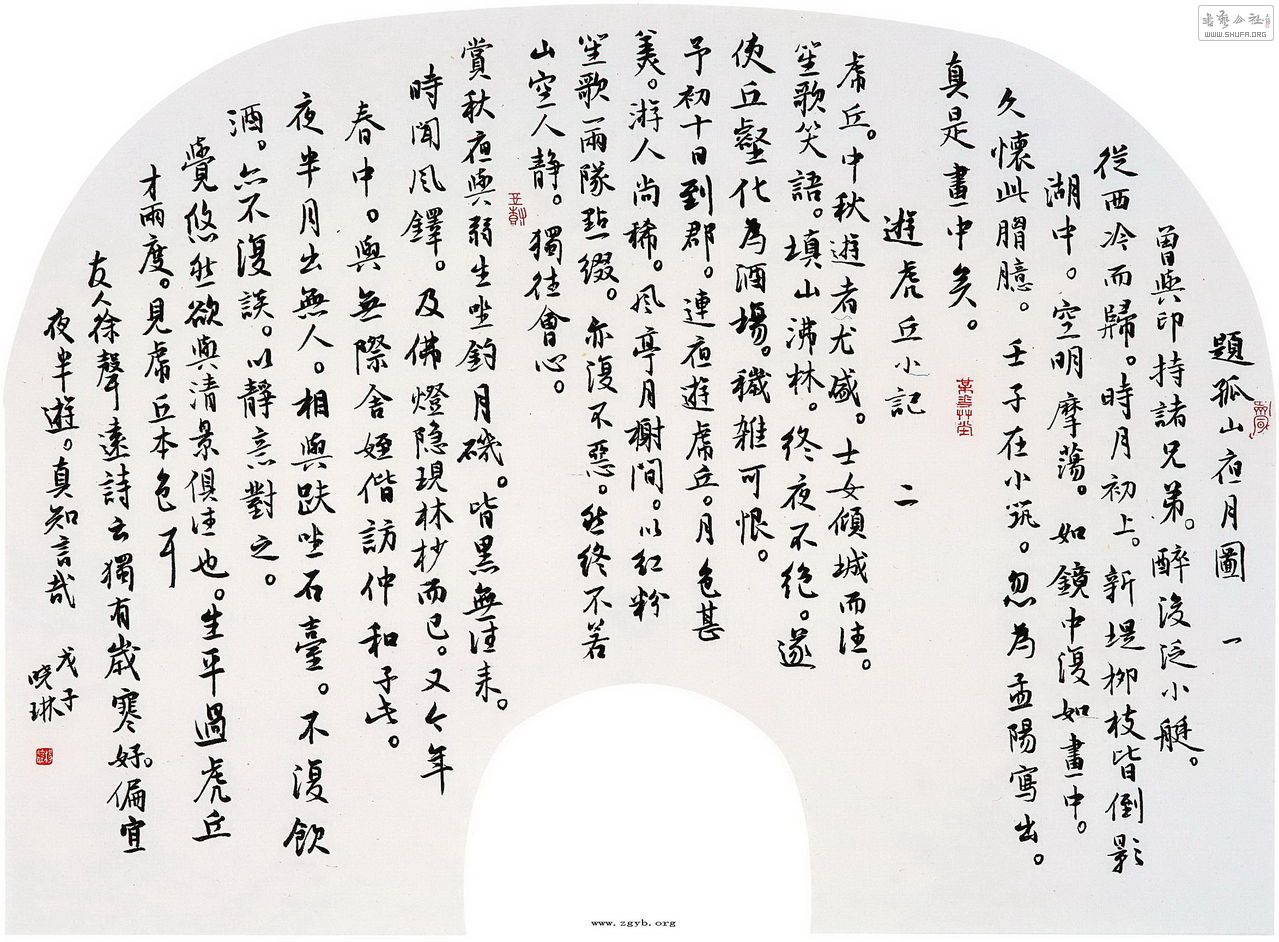 題孤山夜月圖 一
曾與印持諸兄弟。醉後泛小艇。
從西冷而歸。時月初上。新堤柳枝皆倒影
湖中。空明摩蕩。如鏡中復如畫中。
久懷此胷臆。壬子在小筑。忽為孟陽寫出。
真是畫中矣。
遊虎丘小記 二
虎丘。中秋遊者尤盛。士女傾城而往。
笙歌笑語。填山沸林。終夜不絕。遂
使丘壑化為酒場。穢雜可恨。
予初十日到郡。連夜遊虎丘。月色甚
美。游人尚稀。風亭月榭間。以紅粉
笙歌一兩隊點綴。亦復不惡。然終不若
山空人静。獨往會心。
賞秋夜與弱生坐釣月磯。皆黑無往来。
時聞風鐸。及佛燈隐現林杪而已。又今年
春中。與無際舍姪偕訪仲和于此。
夜半月出無人。相與趺坐石臺。不復飲
酒。亦不復談。以靜意對之。
覺悠然欲與清景俱往也。生平過虎丘
才兩度。見虎丘本色耳
友人徐聲遠詩云獨有歲寒好。偏宜
夜半遊。真知言哉
戊子
晓琳
WWW.SHUFA.ORG
www.zgyb.org